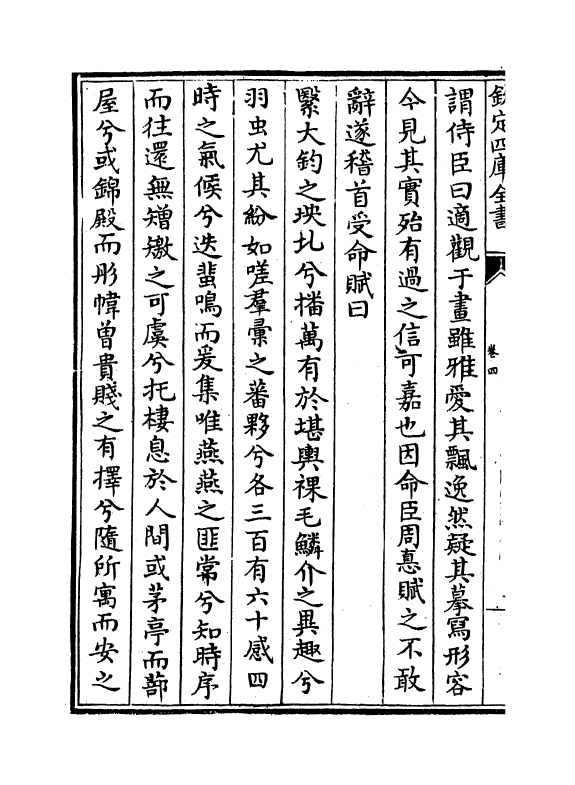 欽定四庫全書
卷四
謂侍臣曰適觀于畫雖雅愛其飄逸然疑其摹寫形容
今見其實殆有過之信可嘉也因命臣周憙賦之不敢
辭遂稽首受命賦曰
繄大鈞之坱圠兮播萬有於堪輿裸毛鱗介之異趣兮
羽虫尤其紛如嗟羣彚之蕃夥兮各三百有六十感四
時之氣候兮迭蜚鳴而爰集唯燕燕之匪常兮知時序
而往還無矰繳之可虞兮托棲息於人間或茅亭而蔀
屋兮或錦殿而彤幃曾貴賤之有擇兮隨所寓而安之